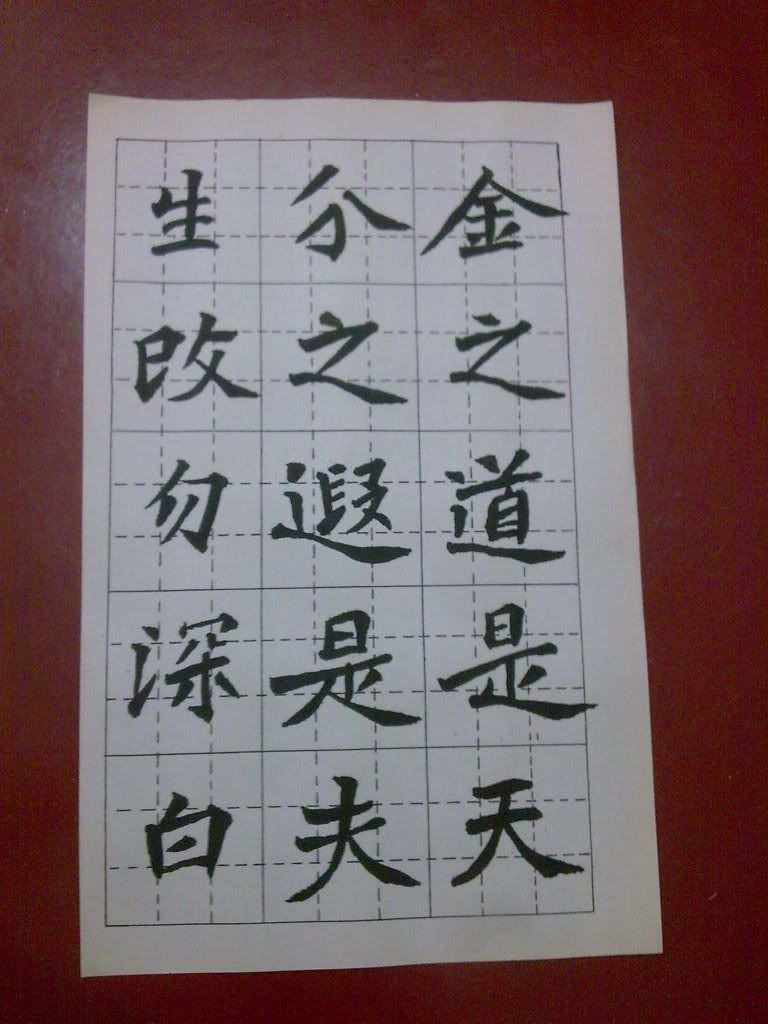 金之道是天
分之遐是夫
生改勿深白